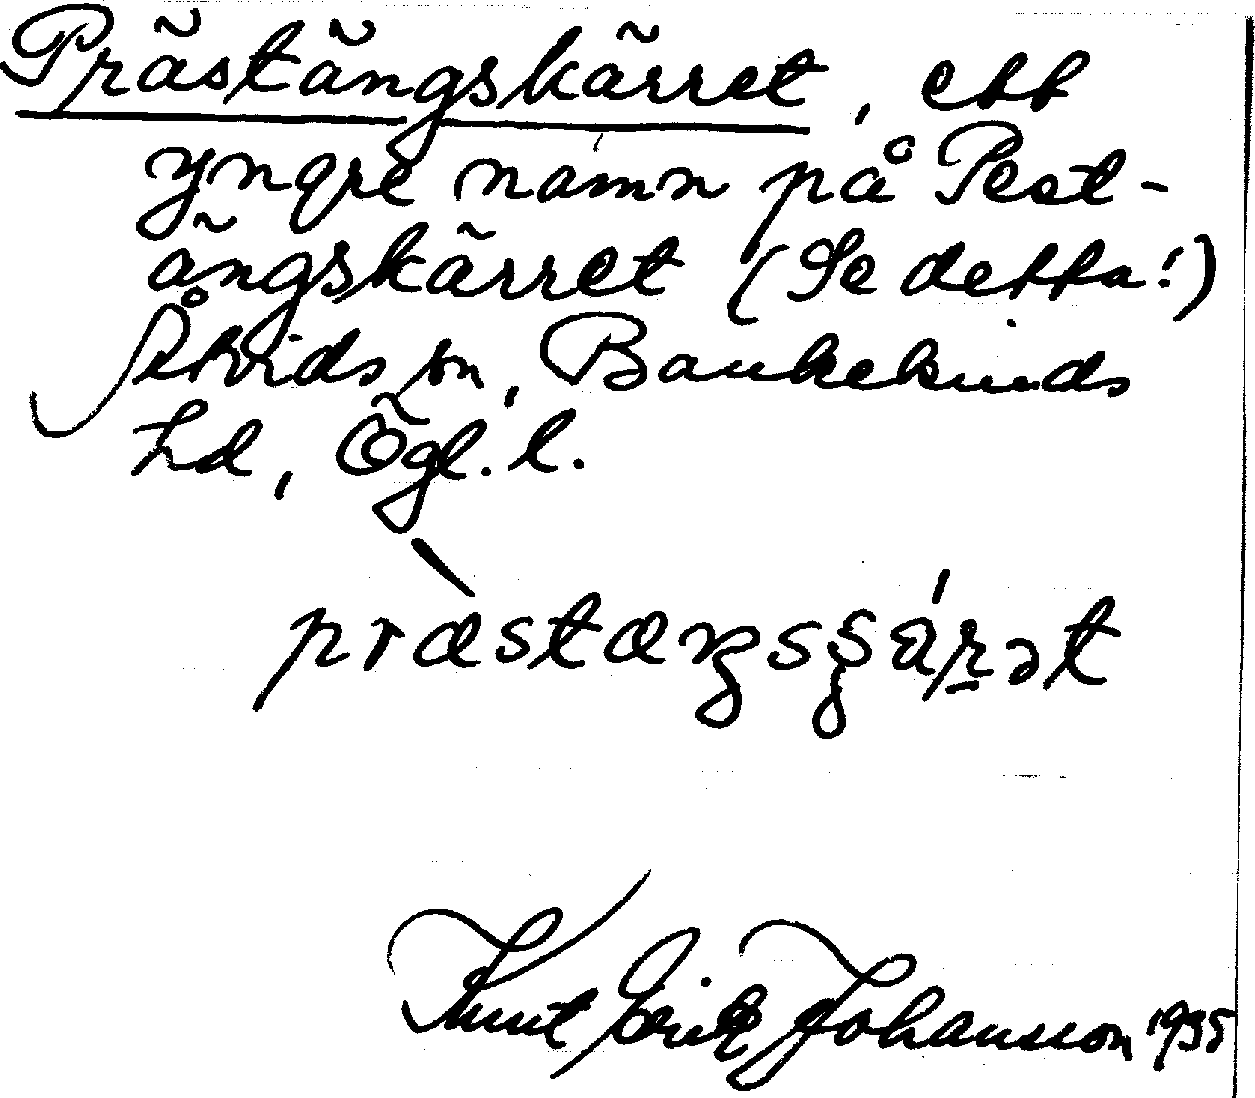 Prästängskärret, ett
yngre namn på Pest-
ängskärret (Se detta!)
Åtvids sn, Bankekinds
hd, Ögl. l.
Knut Erik Johansson 1935